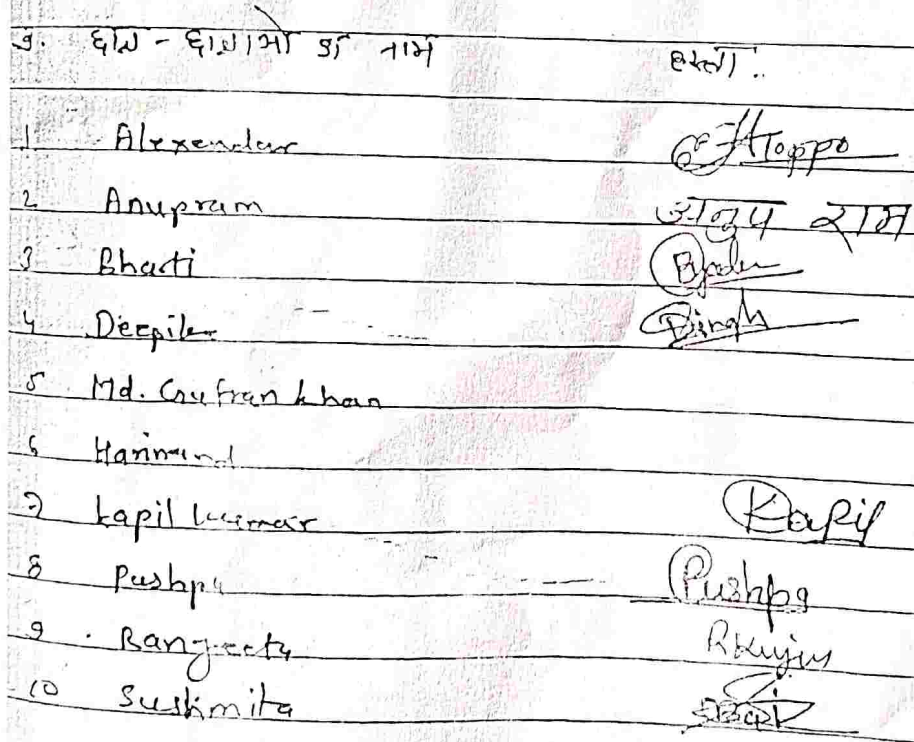 क्र. छात्र - छात्राओं का नाम हस्ता.
1 Alexender Toppo
2 Anupram अनुप राम
3 Bharti
4 Deepika DSingh
5 Md. Gufran khan
6 Harinand
7 kapil kumar Kapil
8 Pushpa Pushpa
9 Rangeeta RKujur
10 Sushmita